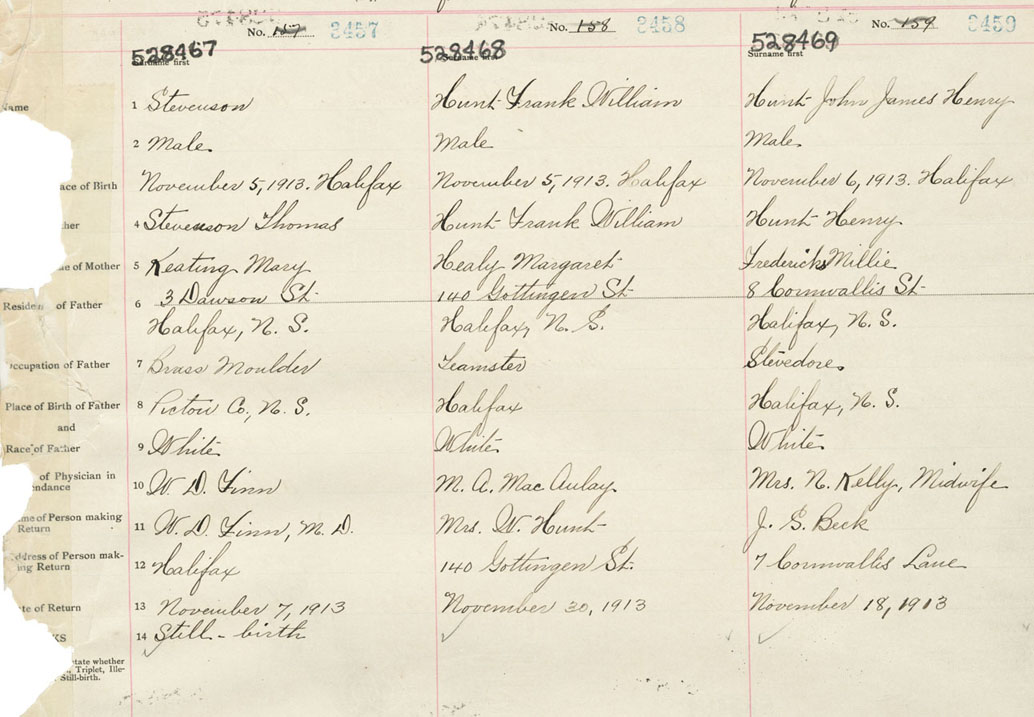 No. 157 3457 No. 158 3458 No. 159 3459
528467 528468 528469
Surname first Surname first Surname first
ame 1 Stevenson Hunt Frank William Hunt John James Henry
2 Male. Male Male.
ace of Birth November 5, 1913. Halifax November 5, 1913. Halifax November 6, 1913. Halifax
ther 4 Stevenson Thomas Hunt Frank William Hunt Henry
e of Mother 5 Keating Mary Healy Margaret Fredericks Millie
3 Dawson St 140 Gottingen St 8 Cornwallis St
Residen of Father 6
Halifax, N. S. Halifax, N. S. Halifax, N. S.
ccupation of Father 7 Brass Moulder Teamster Stevedore.
Place of Birth of Father 8 Pictou Co, N. S. Halifax Halifax, N. S.
and
Race of Father 9 White White White
of Physician in
endance 10 W. D. Finn M. A. Mac Aulay Mrs. N. Kelly, Midwife
me of Person making
Return 11 W. D. Finn, M. D. Mrs. W. Hunt J. S. Beck
ddress of Person mak-
ing Return 12 Halifax 140 Gottingen St. 7 Cornwallis Lane
te of Return 13 November 7, 1913 November 30, 1913 November 18, 1913
KS 14 Still-birth
tate whether
Triplet, Ille-
Still-birth.